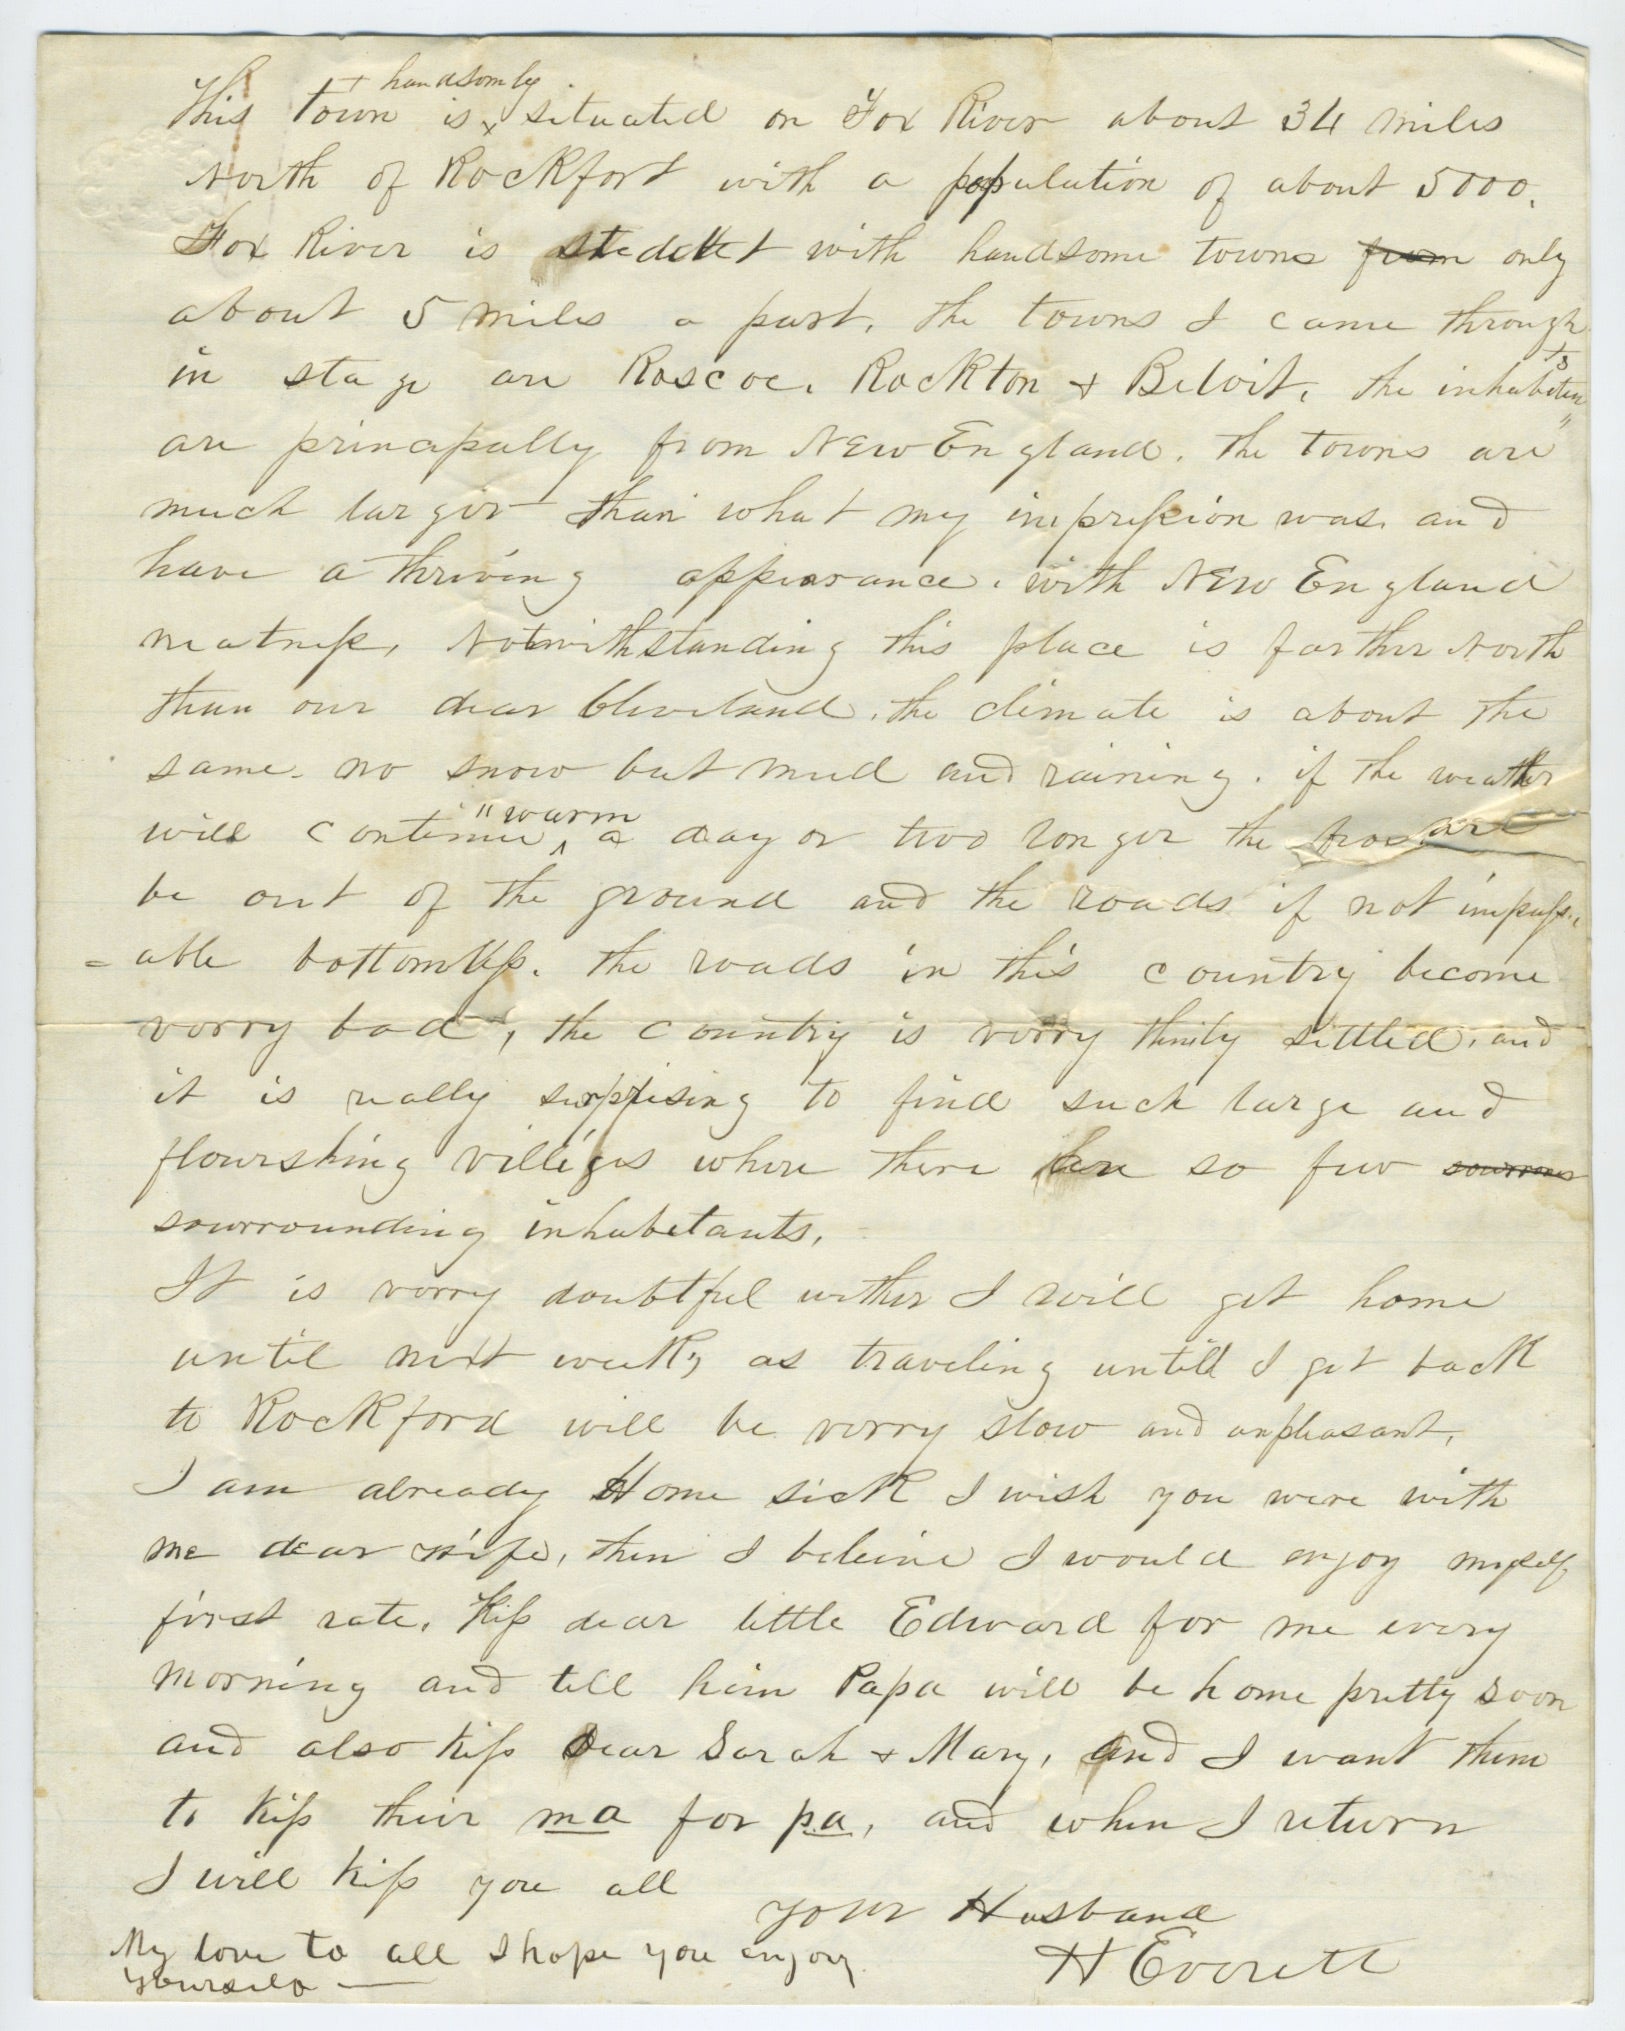 This town is handsomly situated on Fox River about 34 miles
North of Rockfort with a population of about 5000.
Fox River is with handsome towns from only
about 5 miles a part. the towns I came through
in stage are Roscoe. Rockton + Beloit. the inhabetents
are principally from New England. the towns are
much larger than what my impression was. and
have a thriving appearance. with New England
neatness. Notwithstanding this place is farther North
than our dear Cleveland. the climate is about the
same. no snow but mud and raining. if the weather
will continue "warm a day or two longer the
be out of the ground and the roads if not impass
=able bottomless. the roads in this country become
verry bad, the country is verry thinly settled. and
it is really surprising to find such large and
flourshing villiges where there are so few
sourrounding inhabetants.
It is verry doubtful wither I will get home
until next week, as traveling untill I get back
to Rockford will be verry slow and unpleasant.
I am already Home sick I wish you were with
me dear wife, then I beleive I would enjoy myself
first rate. Kiss dear little Edward for me every
morning and tell him Papa will be home pretty soon
and also kiss Dear Sarah + Mary, and I want them
to kiss their ma for pa, and when I return
I will kiss you all
your Husband
H Everett
My love to all I hope you enjoy
yourself —